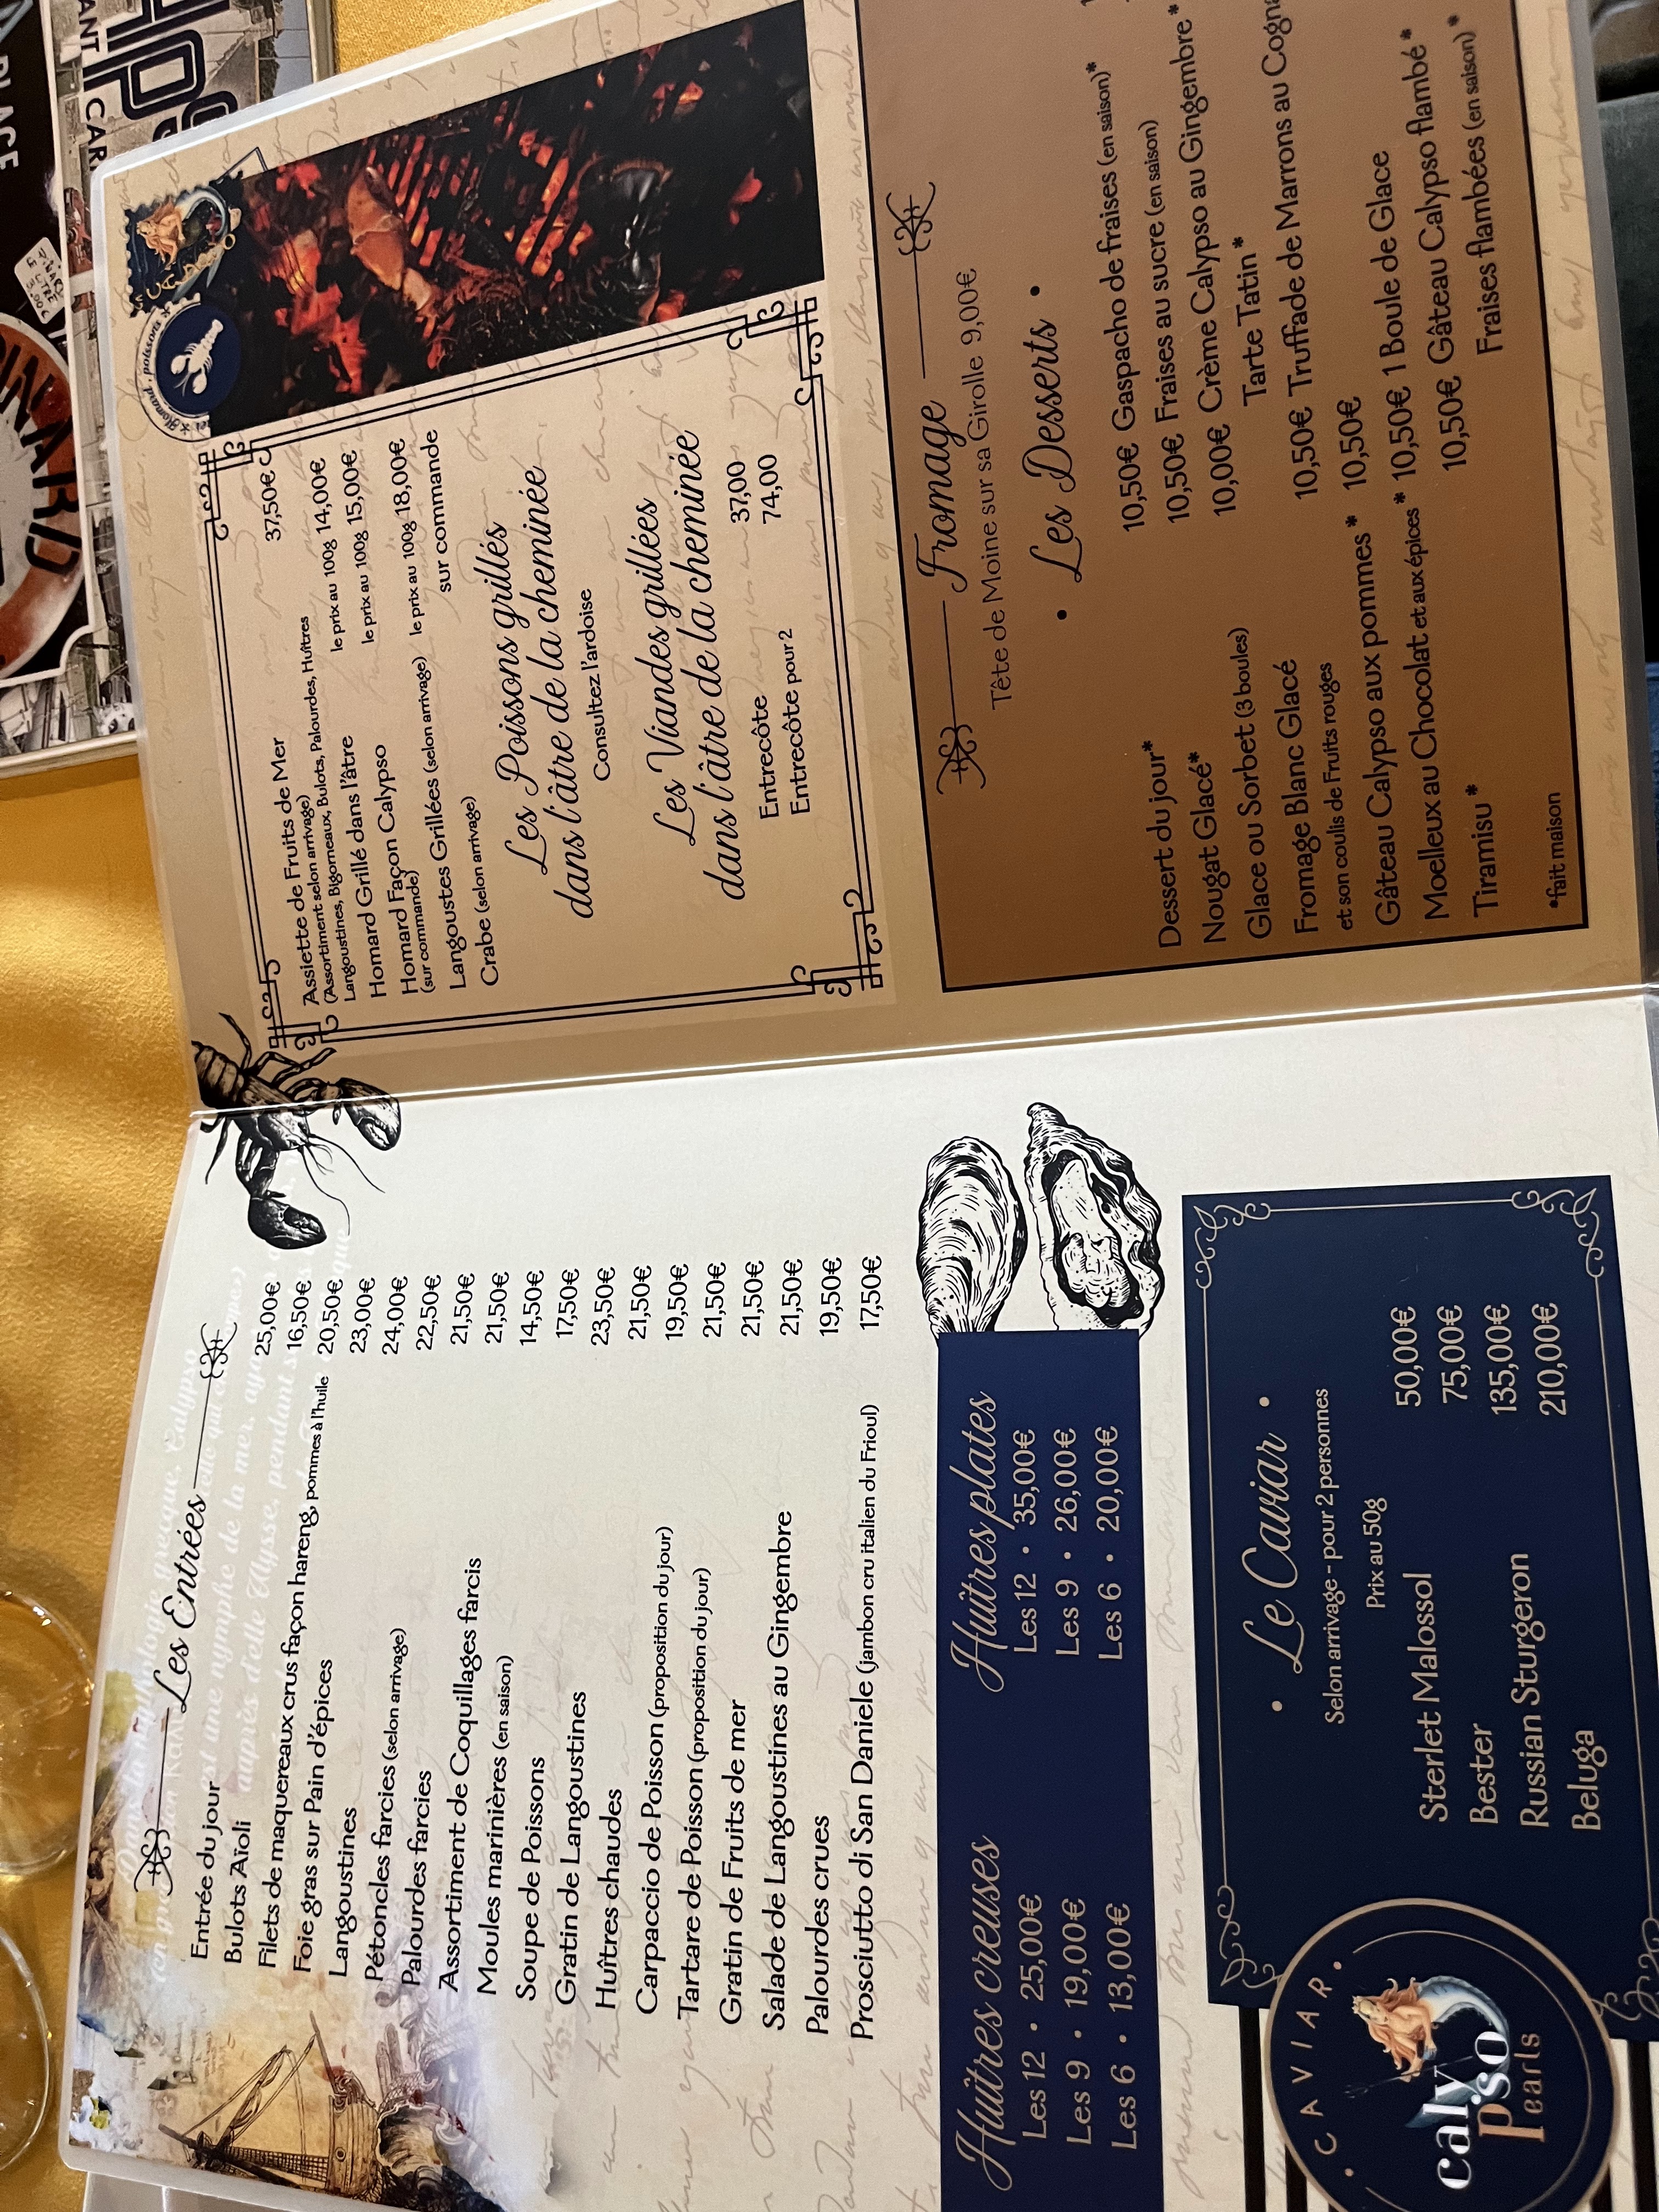 Les Entrées
Entrée du jour 25,00€
Bulots Aïoli 16,50€
Filets de maquereaux crus façon hareng, pommes à l'huile 20,50€
Foie gras sur Pain d'épices 23,00€
Langoustines 24,00€
Pétoncles farcies (selon arrivage) 22,50€
Palourdes farcies 21,50€
Assortiment de Coquillages farcis 21,50€
Moules marinières (en saison) 14,50€
Soupe de Poissons 17,50€
Gratin de Langoustines 23,50€
Huîtres chaudes 21,50€
Carpaccio de Poisson (proposition du jour) 19,50€
Tartare de Poisson (proposition du jour) 21,50€
Gratin de Fruits de mer 21,50€
Salade de Langoustines au Gingembre 21,50€
Palourdes crues 19,50€
Prosciutto di San Daniele (jambon cru italien du Frioul) 17,50€
Huîtres creuses
Les 12 • 25,00€
Les 9 • 19,00€
Les 6 • 13,00€
Huîtres plates
Les 12 • 35,00€
Les 9 • 26,00€
Les 6 • 20,00€
• Le Caviar •
Selon arrivage - pour 2 personnes
Prix au 50g
Sterlet Malossol 50,00€
Bester 75,00€
Russian Sturgeron 135,00€
Beluga 210,00€
• CAVIAR •
calypso
Pearls
Assiette de Fruits de Mer 37,50€
(Assortiment selon arrivage)
(Langoustines, Bigorneaux, Bulots, Palourdes, Huîtres
Homard Grillé dans l'âtre le prix au 100g 14,00€
Homard Façon Calypso le prix au 100g 15,00€
(sur commande)
Langoustes Grillées (selon arrivage) le prix au 100g 18,00€
Crabe (selon arrivage) sur commande
Les Poissons grillés
dans l'âtre de la cheminée
Consultez l'ardoise
Les Viandes grillées
dans l'âtre de la cheminée
Entrecôte 37,00
Entrecôte pour 2 74,00
Homard, poissons
Fromage
Tête de Moine sur sa Girolle 9,00€
• Les Desserts •
Dessert du jour* 10,50€
Nougat Glacé* 10,50€
Glace ou Sorbet (3 boules) 10,00€
Fromage Blanc Glacé 10,50€
et son coulis de Fruits rouges
Gâteau Calypso aux pommes * 10,50€
Moelleux au Chocolat et aux épices * 10,50€
Tiramisu * 10,50€
Gaspacho de fraises (en saison)*
Fraises au sucre (en saison)
Crème Calypso au Gingembre *
Tarte Tatin *
Truffade de Marrons au
1 Boule de Glace
Gâteau Calypso flambé *
Fraises flambées (en saison) *
*fait maison